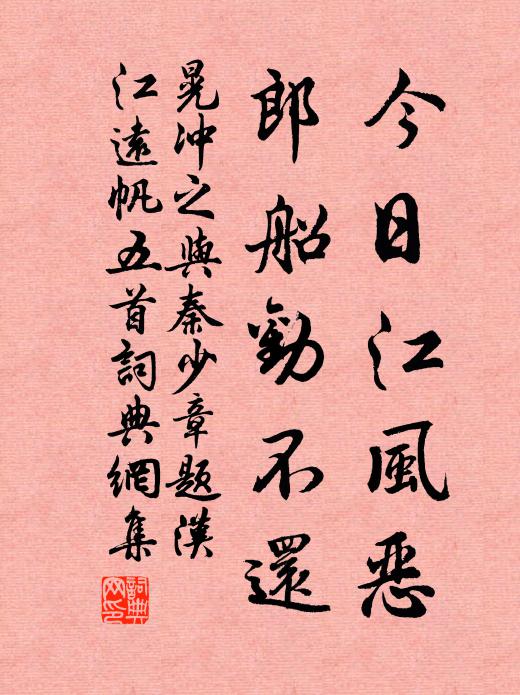 今日江風惡
郎船勸不還
晁沖之與秦少章題漢
江遠帆五首詞典網集
詞典
網印